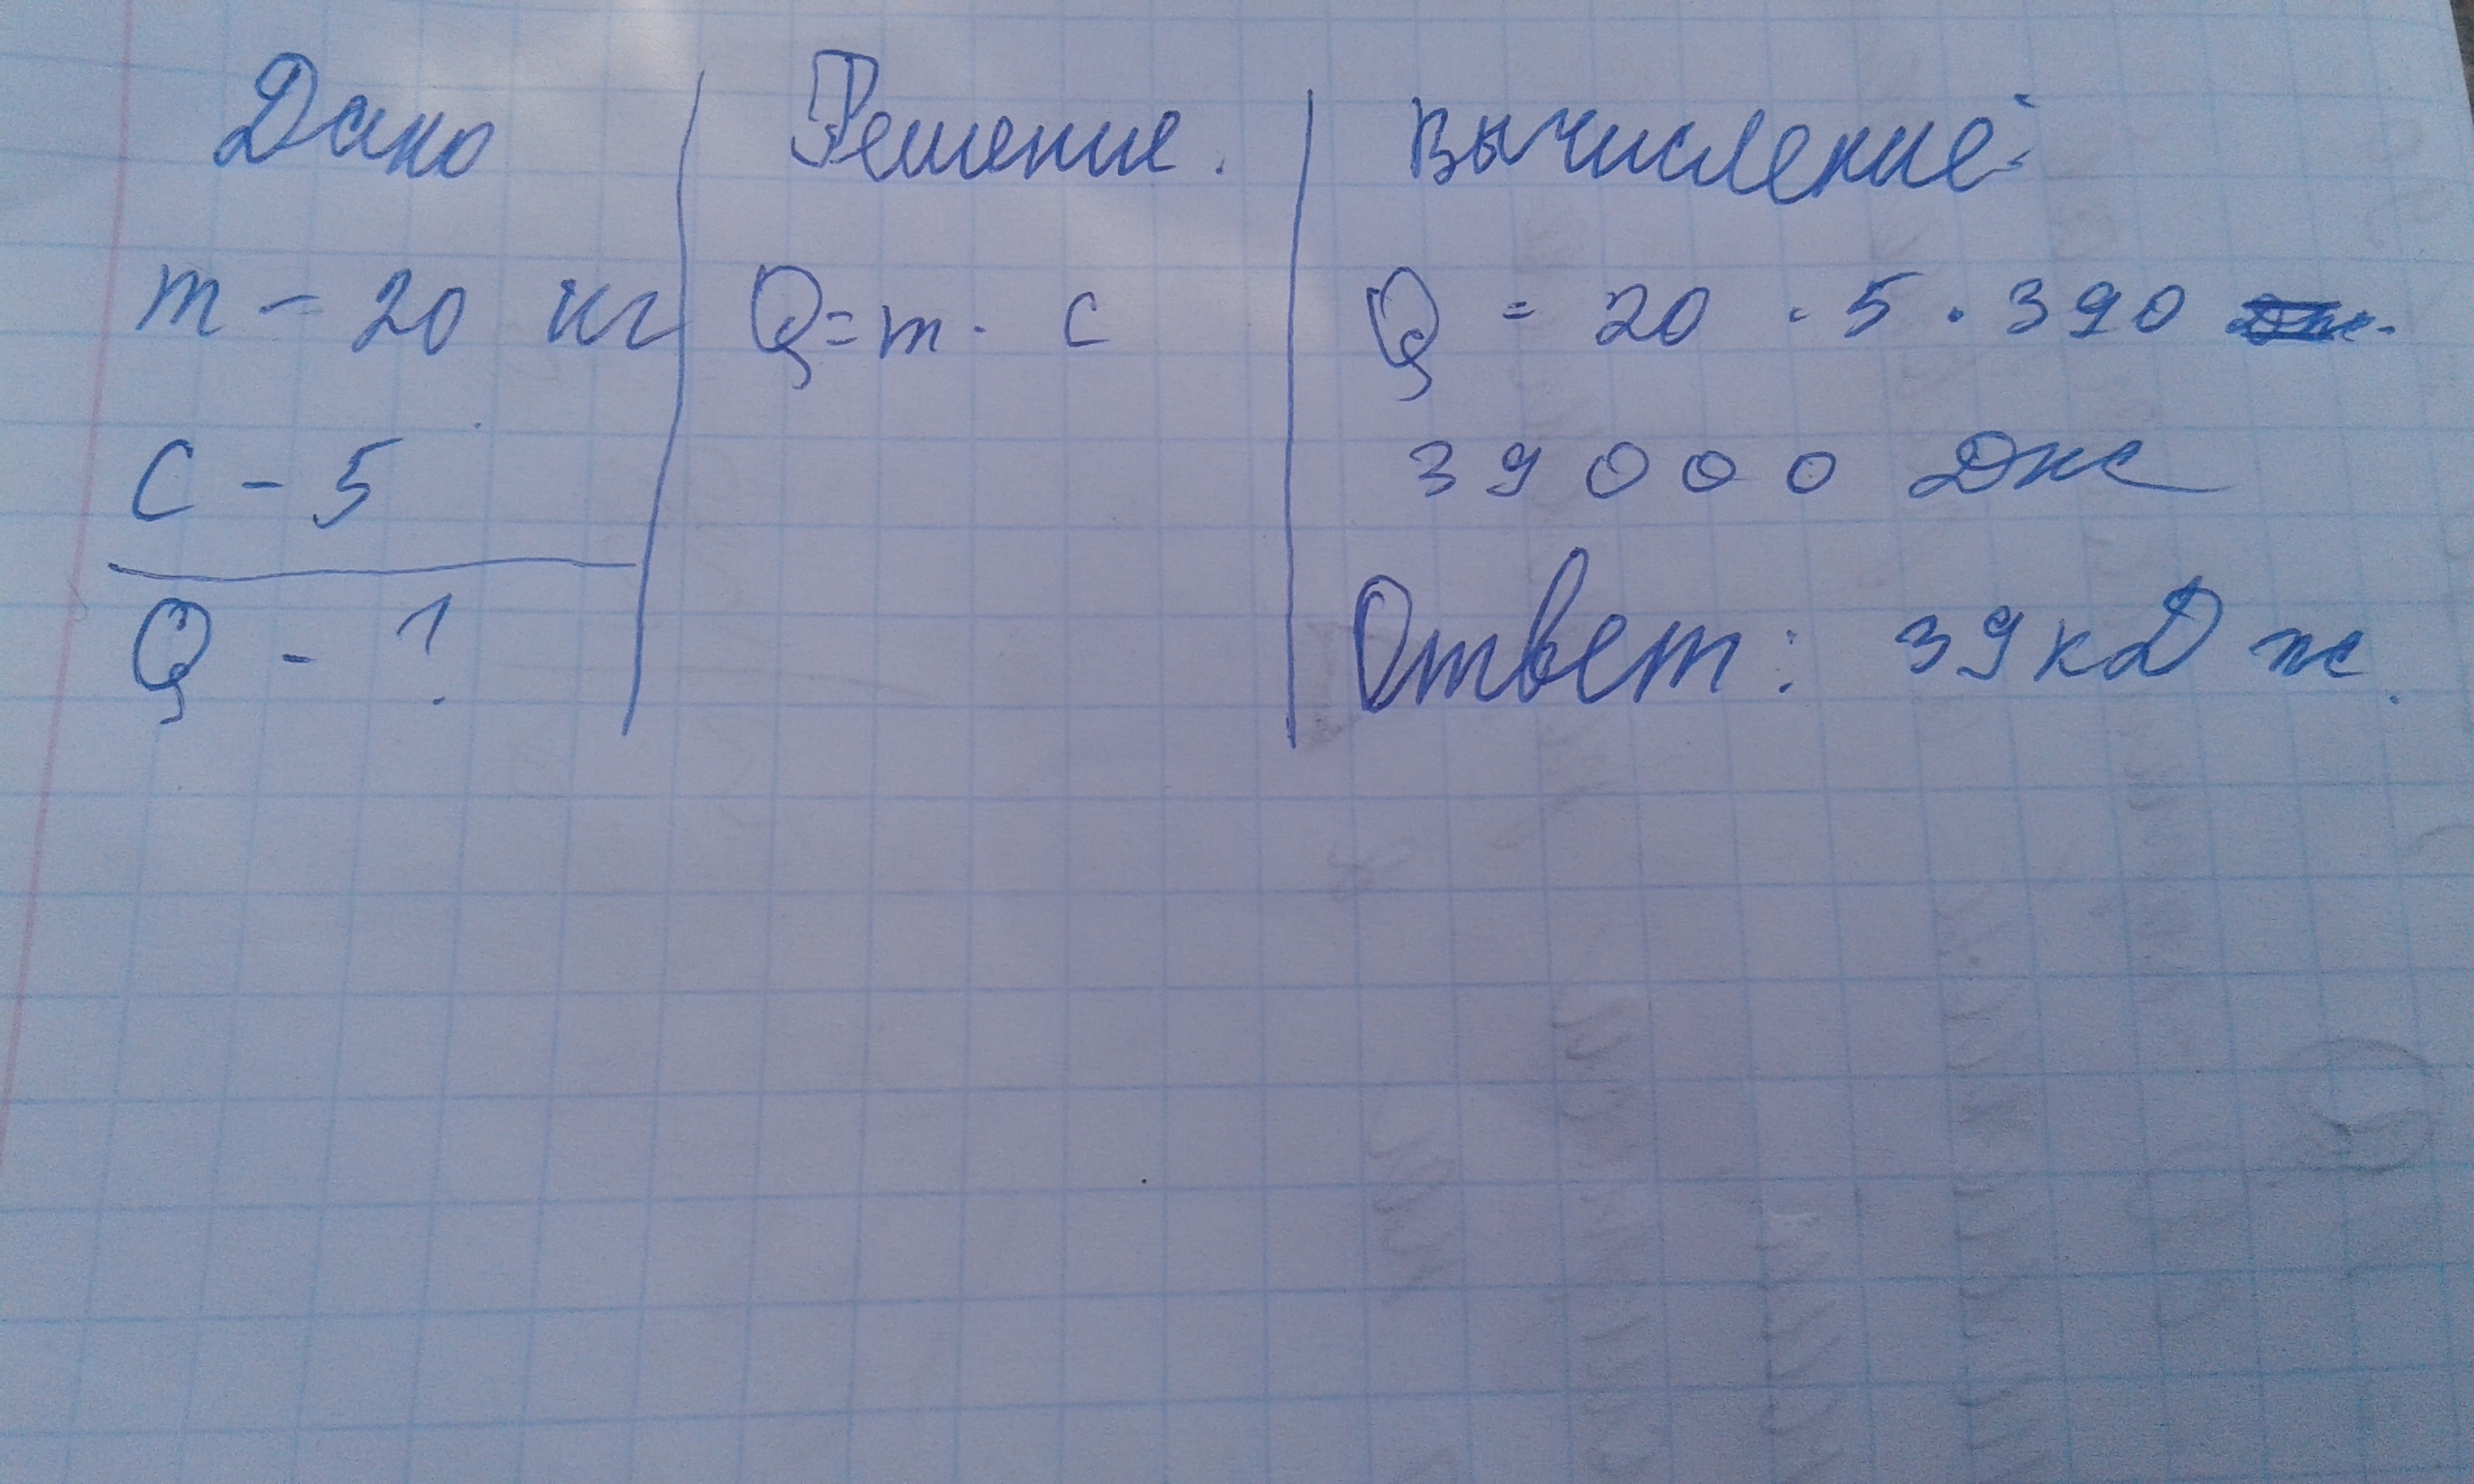 Дано
m - 20 кг
C - 5
Q - ?
Решение.
Q = m · c
Вычисление
Q = 20 · 5 · 390
39000 Дж
Ответ: 39 кДж.